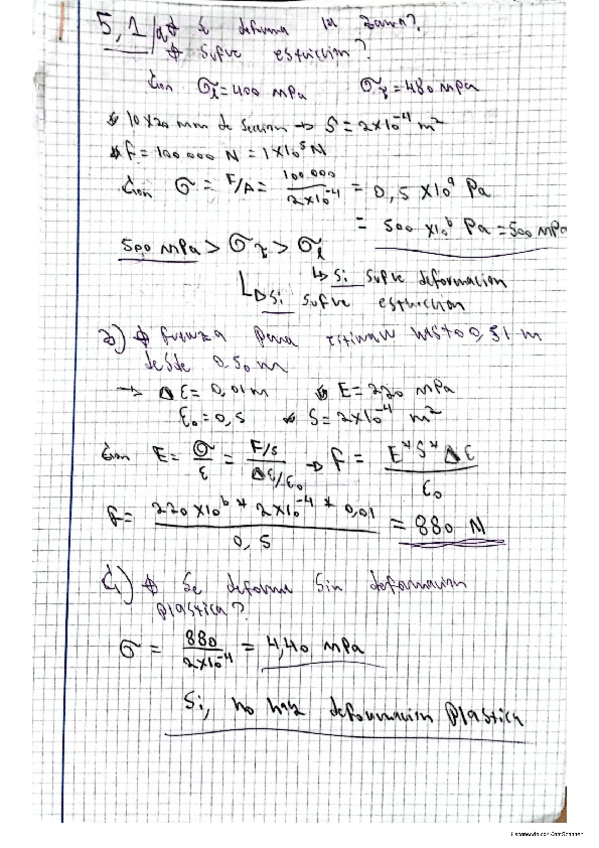 5,1 / a) * Se deforma la barra?
* Sufre estricción?
Con σl = 400 MPa σr = 480 MPa
* 10x20 mm de sección → S = 2x10⁻⁴ m²
* F = 100.000 N = 1x10⁵ N
Con σ = F/A = 100.000 / 2x10⁻⁴ = 0,5 x10⁹ Pa
= 500 x10⁶ Pa = 500 MPa
500 MPa > σr > σl
↳ Si sufre deformacion
↳ Si sufre estriccion
b) * fuerza para estirar hasta 0,51 m
desde 0,50 m
→ Δε = 0,01 m * E = 220 MPa
ε₀ = 0,5 * S = 2x10⁻⁴ m²
Con E = σ/ε = F/S / Δε/ε₀ → F = E*S*Δε / ε₀
F = 220 x10⁶ * 2x10⁻⁴ * 0,01 / 0,5 = 880 N
C) * Se deforma sin deformacion
plastica?
σ = 880 / 2x10⁻⁴ = 4,40 MPa
Si, no hay deformacion plastica